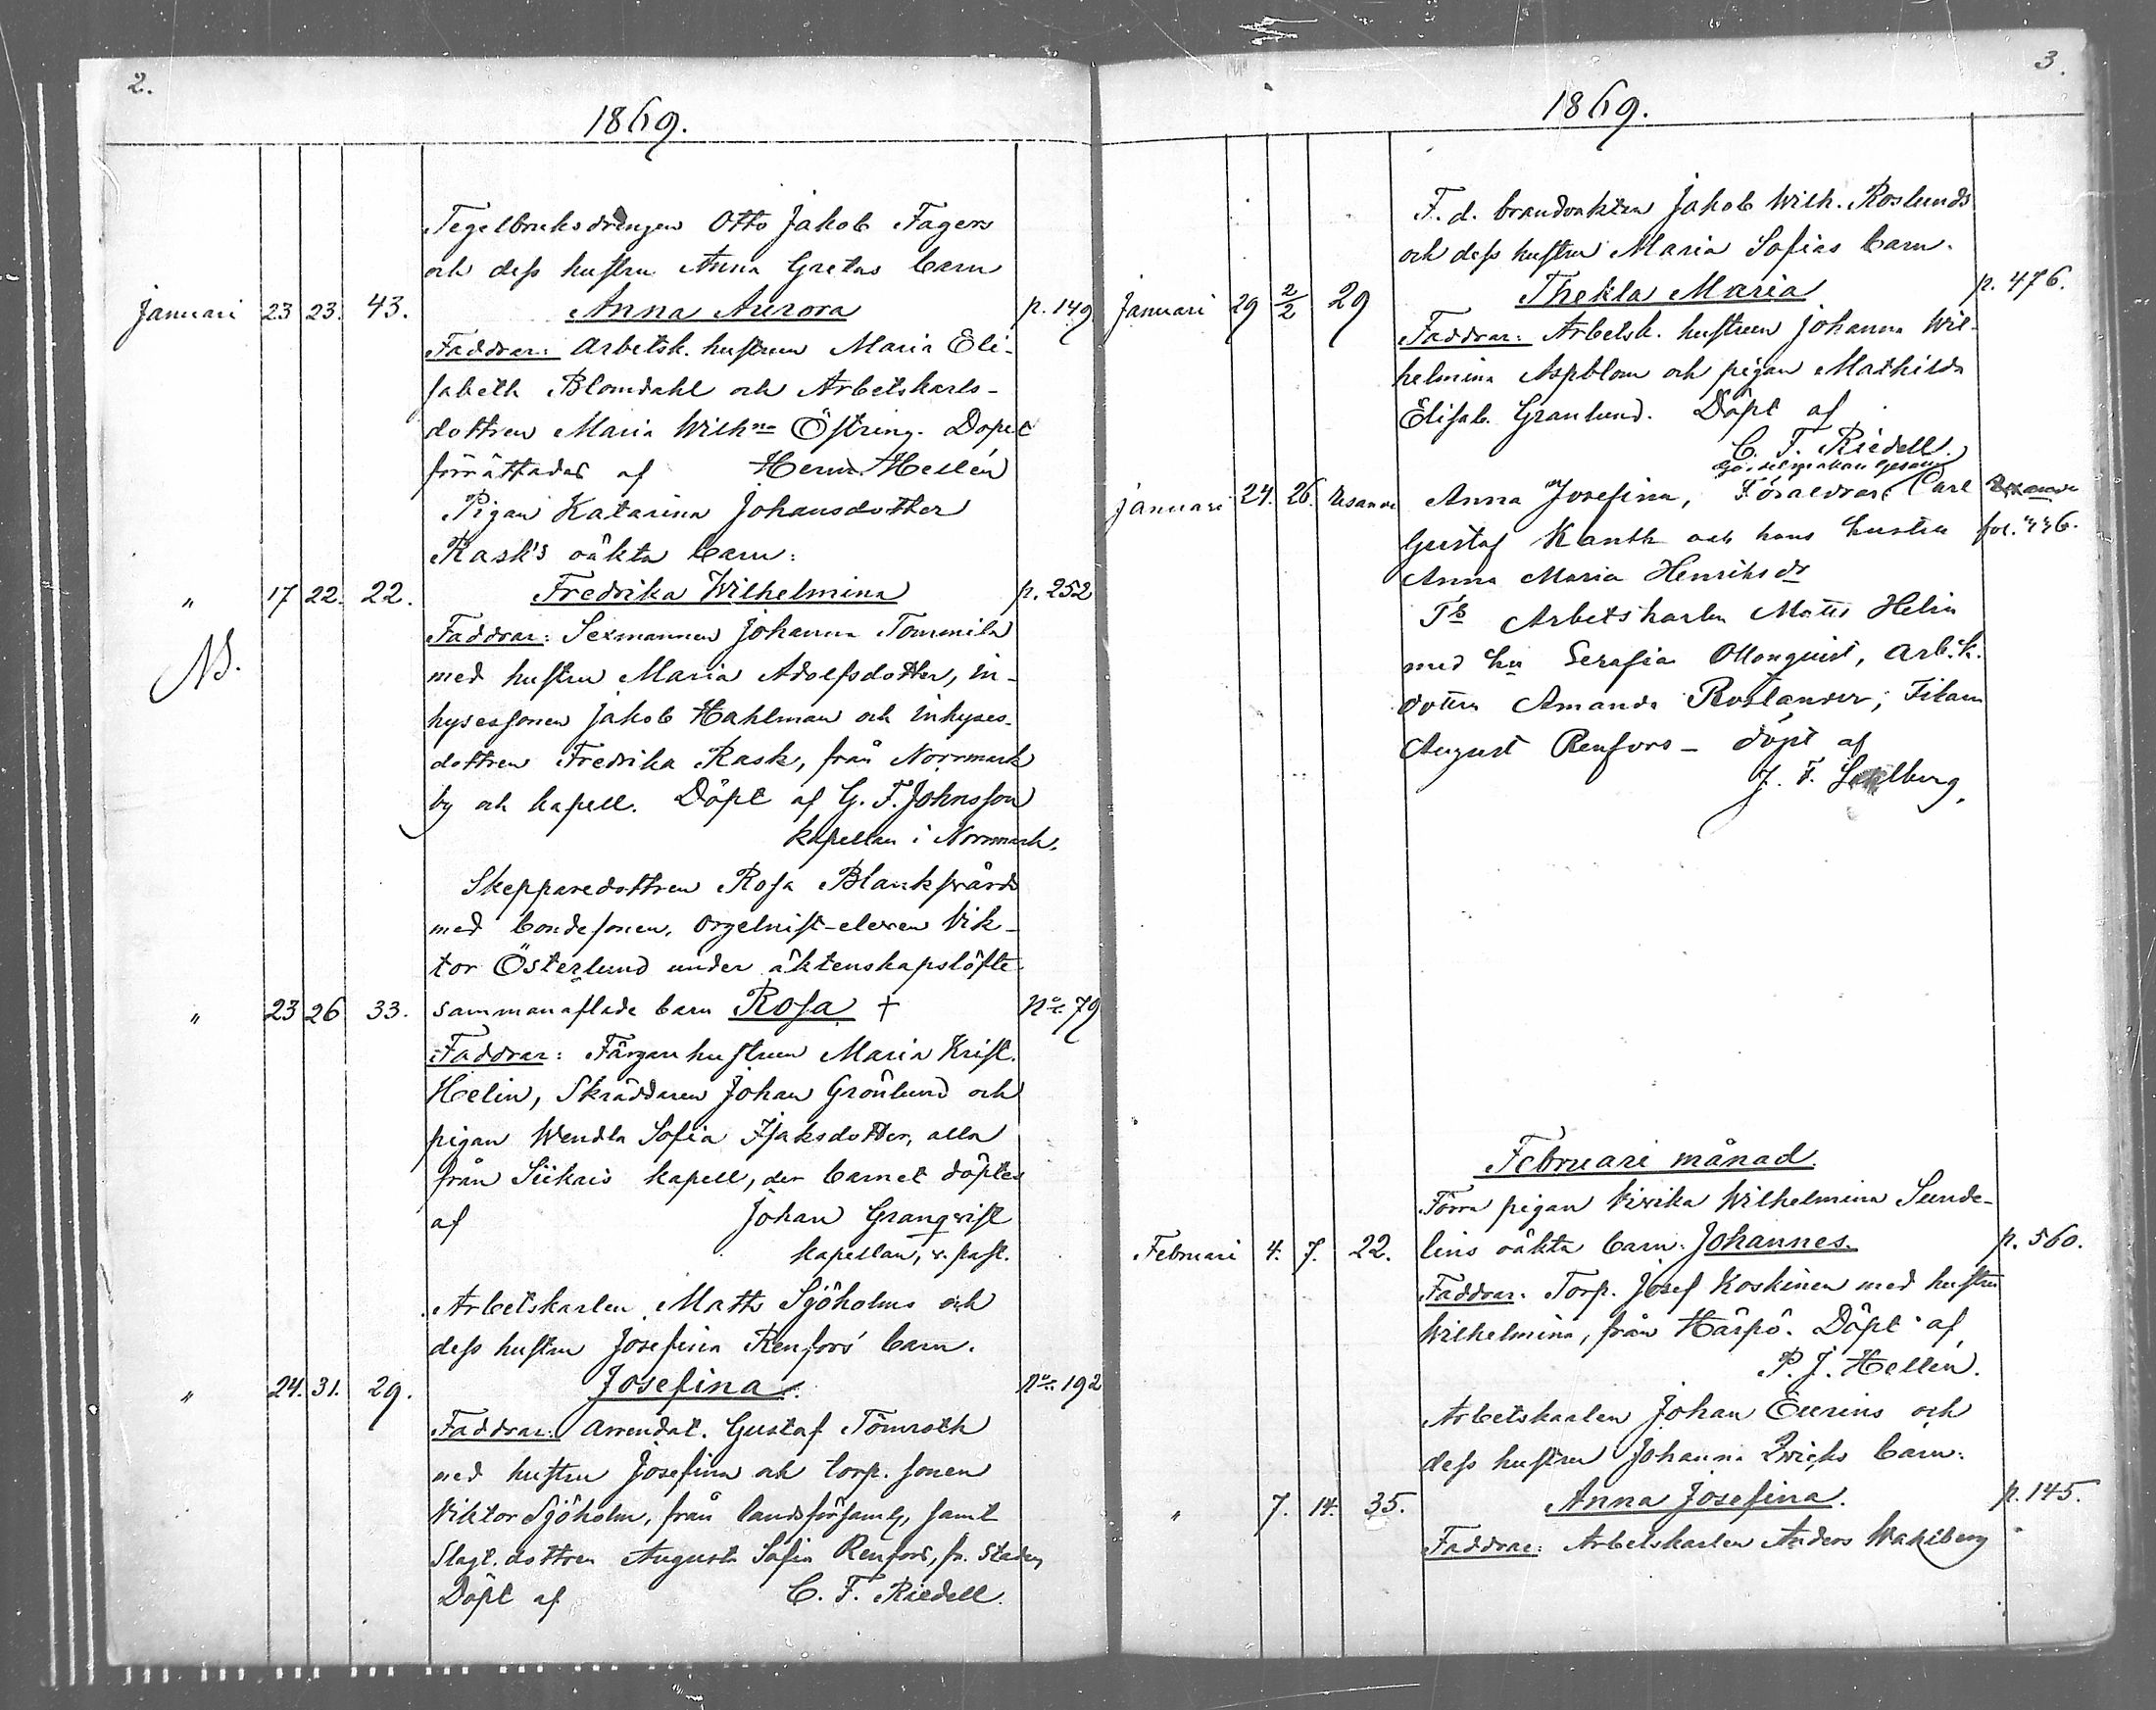 2.
1869.
Tegelbruksdrengen Otto Jakob Fagers
och dess hustru Anna Gretas barn
Januari 23 23. 43. Anna Aurora p. 149
Faddrar: Arbetsk. hustrun Maria Eli-
sabeth Blomdahl och Arbetskarls-
dottren Maria Wilhna Östring. Dopet
förrättades af Herm. Hellén
Pigan Katarina Johansdotter
Rask's oäkta barn:
" 17 22. 22. Fredrika Wilhelmina p. 252
Faddrar: Sexmannen Johan Tommila
NB.
med hustru Maria Adolfsdotter, in-
hysessonen Jakob Hahlman och inhyses-
dottren Fredrika Rask, från Norrmark
by och kapell. Döpt af G. F. Johnsson
kapellan i Norrmark.
Skepparedottren Rosa Blanksvärds
med bondesonen, orgelnist-eleven Vik-
tor Österlund under äktenskapslöfte
" 23 26 33. sammanaflade barn Rosa + No 79
Faddrar: Färgarehustrun Maria Krist.
Helin, Skräddaren Johan Grönlund och
pigan Wendla Sofia Isaksdotter, alla
från Siikais kapell, der barnet döptes
af Johan Granqvist
kapellan, v. past.
Arbetskarlen Matts Sjöholms och
dess hustru Josefina Renfors' barn.
" 24. 31. 29. Josefina. No. 192
Faddrar: Arrendat. Gustaf Törnroth
med hustru Josefina och torp. sonen
Viktor Sjöholm, från landsförsaml, samt
Slagt. dottren Augusta Sofia Renfors, fr. Staden
Döpt af C. F. Riedell.
3.
1869.
F. d. brandvakten Jakob Wilh. Roslunds
och dess hustru Maria Sofias barn.
Januari 29 2/2 29 Thekla Maria p. 476.
Faddrar: Arbetsk. hustrun Johanna Wil-
helmina Aspblom och pigan Mathilda
Elisab. Granlund. Döpt af
C. F. Riedell.
Januari 24. 26. Anna Josefina, Föräldrar: Carl
Gustaf Kanth och hans hustru fol. 446.
Anna Maria Henriksdr
Ts Arbetskarlen Matts Helin
med hu Serafia Ollonquist, arb.k.
dottern Amanda Roslander,
August Renfors – döpt af
J. F. Sahlberg.
Februari månad.
Förra pigan Vivika Wilhelmina Sunde-
Februari 4. 7. 22. lins oäkta barn: Johannes. p. 560.
Faddrar: Torp. Josef Koskinen med hustru
Wilhelmina, från Härpö. Döpt af
P. J. Hellén.
Arbetskarlen Johan Eurins och
dess hustru Johanna barn:
" 7. 14. 35. Anna Josefina. p. 145.
Faddrar: Arbetskarlen Anders Wahlberg